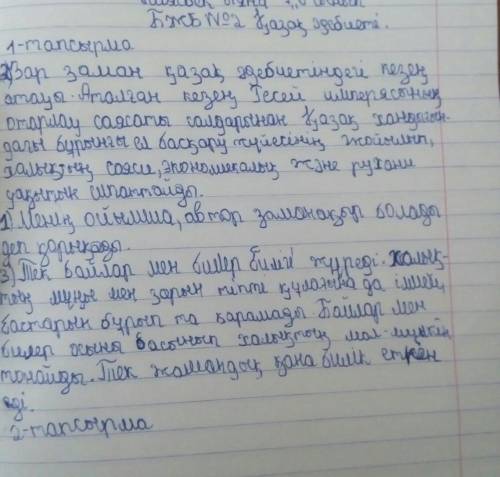 БЖБ №2 Қазақ әдебиеті.
1-тапсырма
2) Зар заман қазақ әдебиетіндегі кезең
атауы. Аталған кезең Ресей империясының
отарлау саясаты салдарынан Қазақ хандығын-
дағы бұрынғы ел басқару жүйесінің жойылып,
халықтың саяси, экономикалық және рухани
уақытын
1) Менің ойымша, автор заманақыр болады
деп қорықады.
3) Тек байлар мен билер билік жүреді. Халық-
тың мұңы мен зарын тіпті құлағына да ілмей,
бастарын бұрып та қарамады. Байлар мен
билер осыны басынып халықтың мал-мүлкін
тонайды. Тек жамандық қана билік еткен
еді.
2-тапсырма